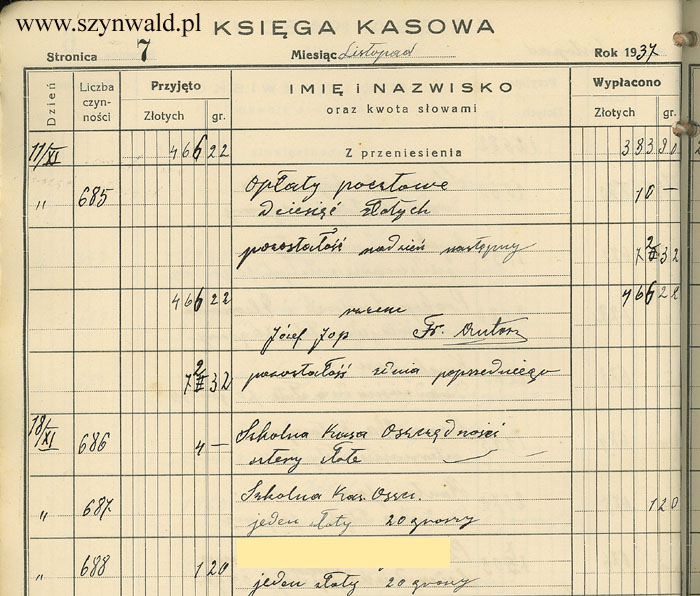 www.szynwald.pl
KSIĘGA KASOWA
Stronica 7 Miesiąc Listopad Rok 1937
Dzień Liczba czyn-ności Przyjęto Złotych gr. IMIĘ i NAZWISKO oraz kwota słowami Wypłacono Złotych gr.
11/XI 466 22 Z przeniesienia 383 90
" 685 Opłaty pocztowe 10 —
dziesięć złotych
pozostałość na dzień następny 72 32
466 22 razem 466 22
Józef Jop Fr.
72 32 pozostałość z dnia poprzedniego
18/XI 686 4 — Szkolna Kasa Oszczędności
cztery złote
" 687 Szkolna Kas. Oszcz. 1 20
jeden złoty 20 groszy
" 688 1 20
jeden złoty 20 groszy